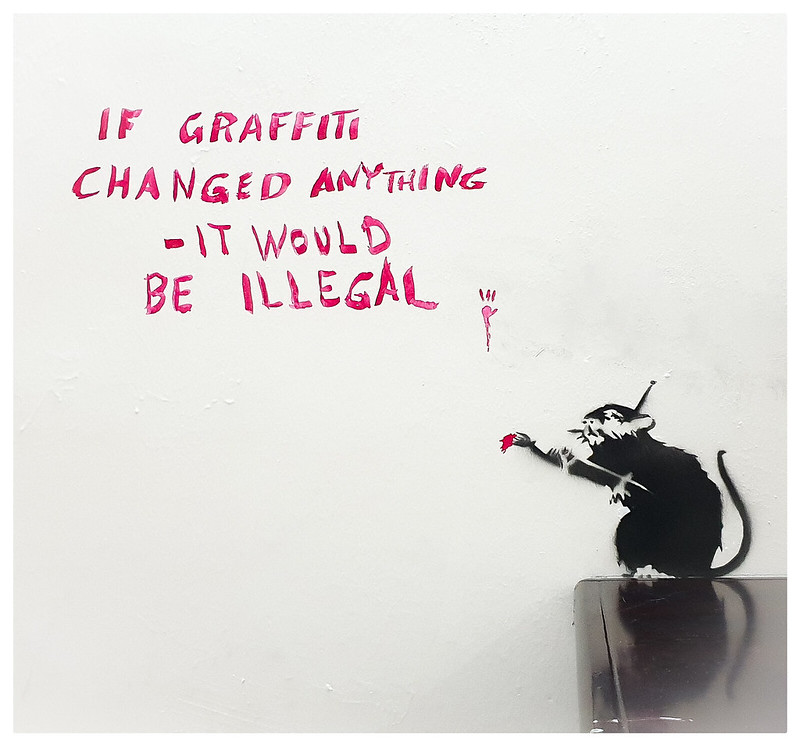 IF GRAFFITI
CHANGED ANYTHING
- IT WOULD
BE ILLEGAL